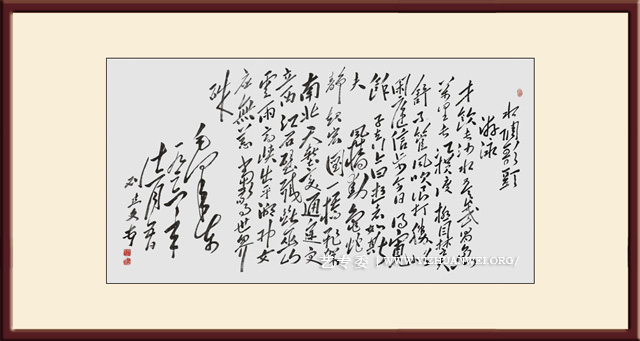 水调歌頭
游泳
才饮长沙水又食武昌鱼
萬里长江横渡极目楚天
舒不管風吹浪打勝似
闲庭信步今日得寬
馀 子在川上曰逝者如斯
夫 風樯動龜蛇
静起宏图一桥飛架
南北天堑变通途更
立西江石壁截断巫山
雲雨高峡出平湖神女
应無恙當惊世界
殊
毛泽东
一九五六年
艺专委